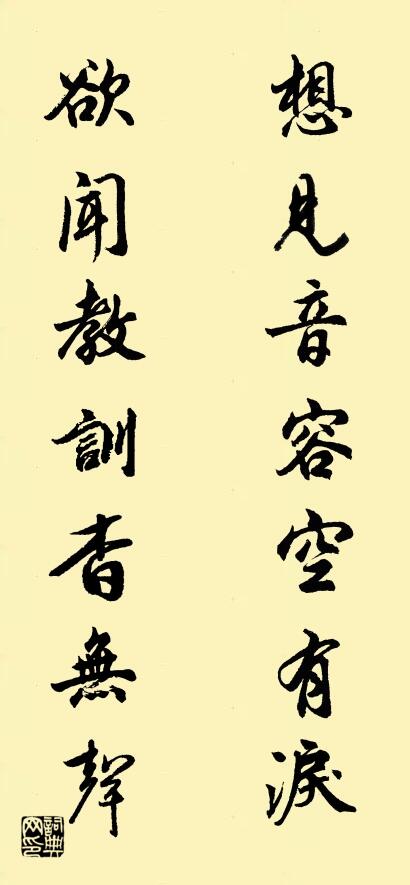 想見音容空有淚
欲聞教訓杳無聲
詞典网印